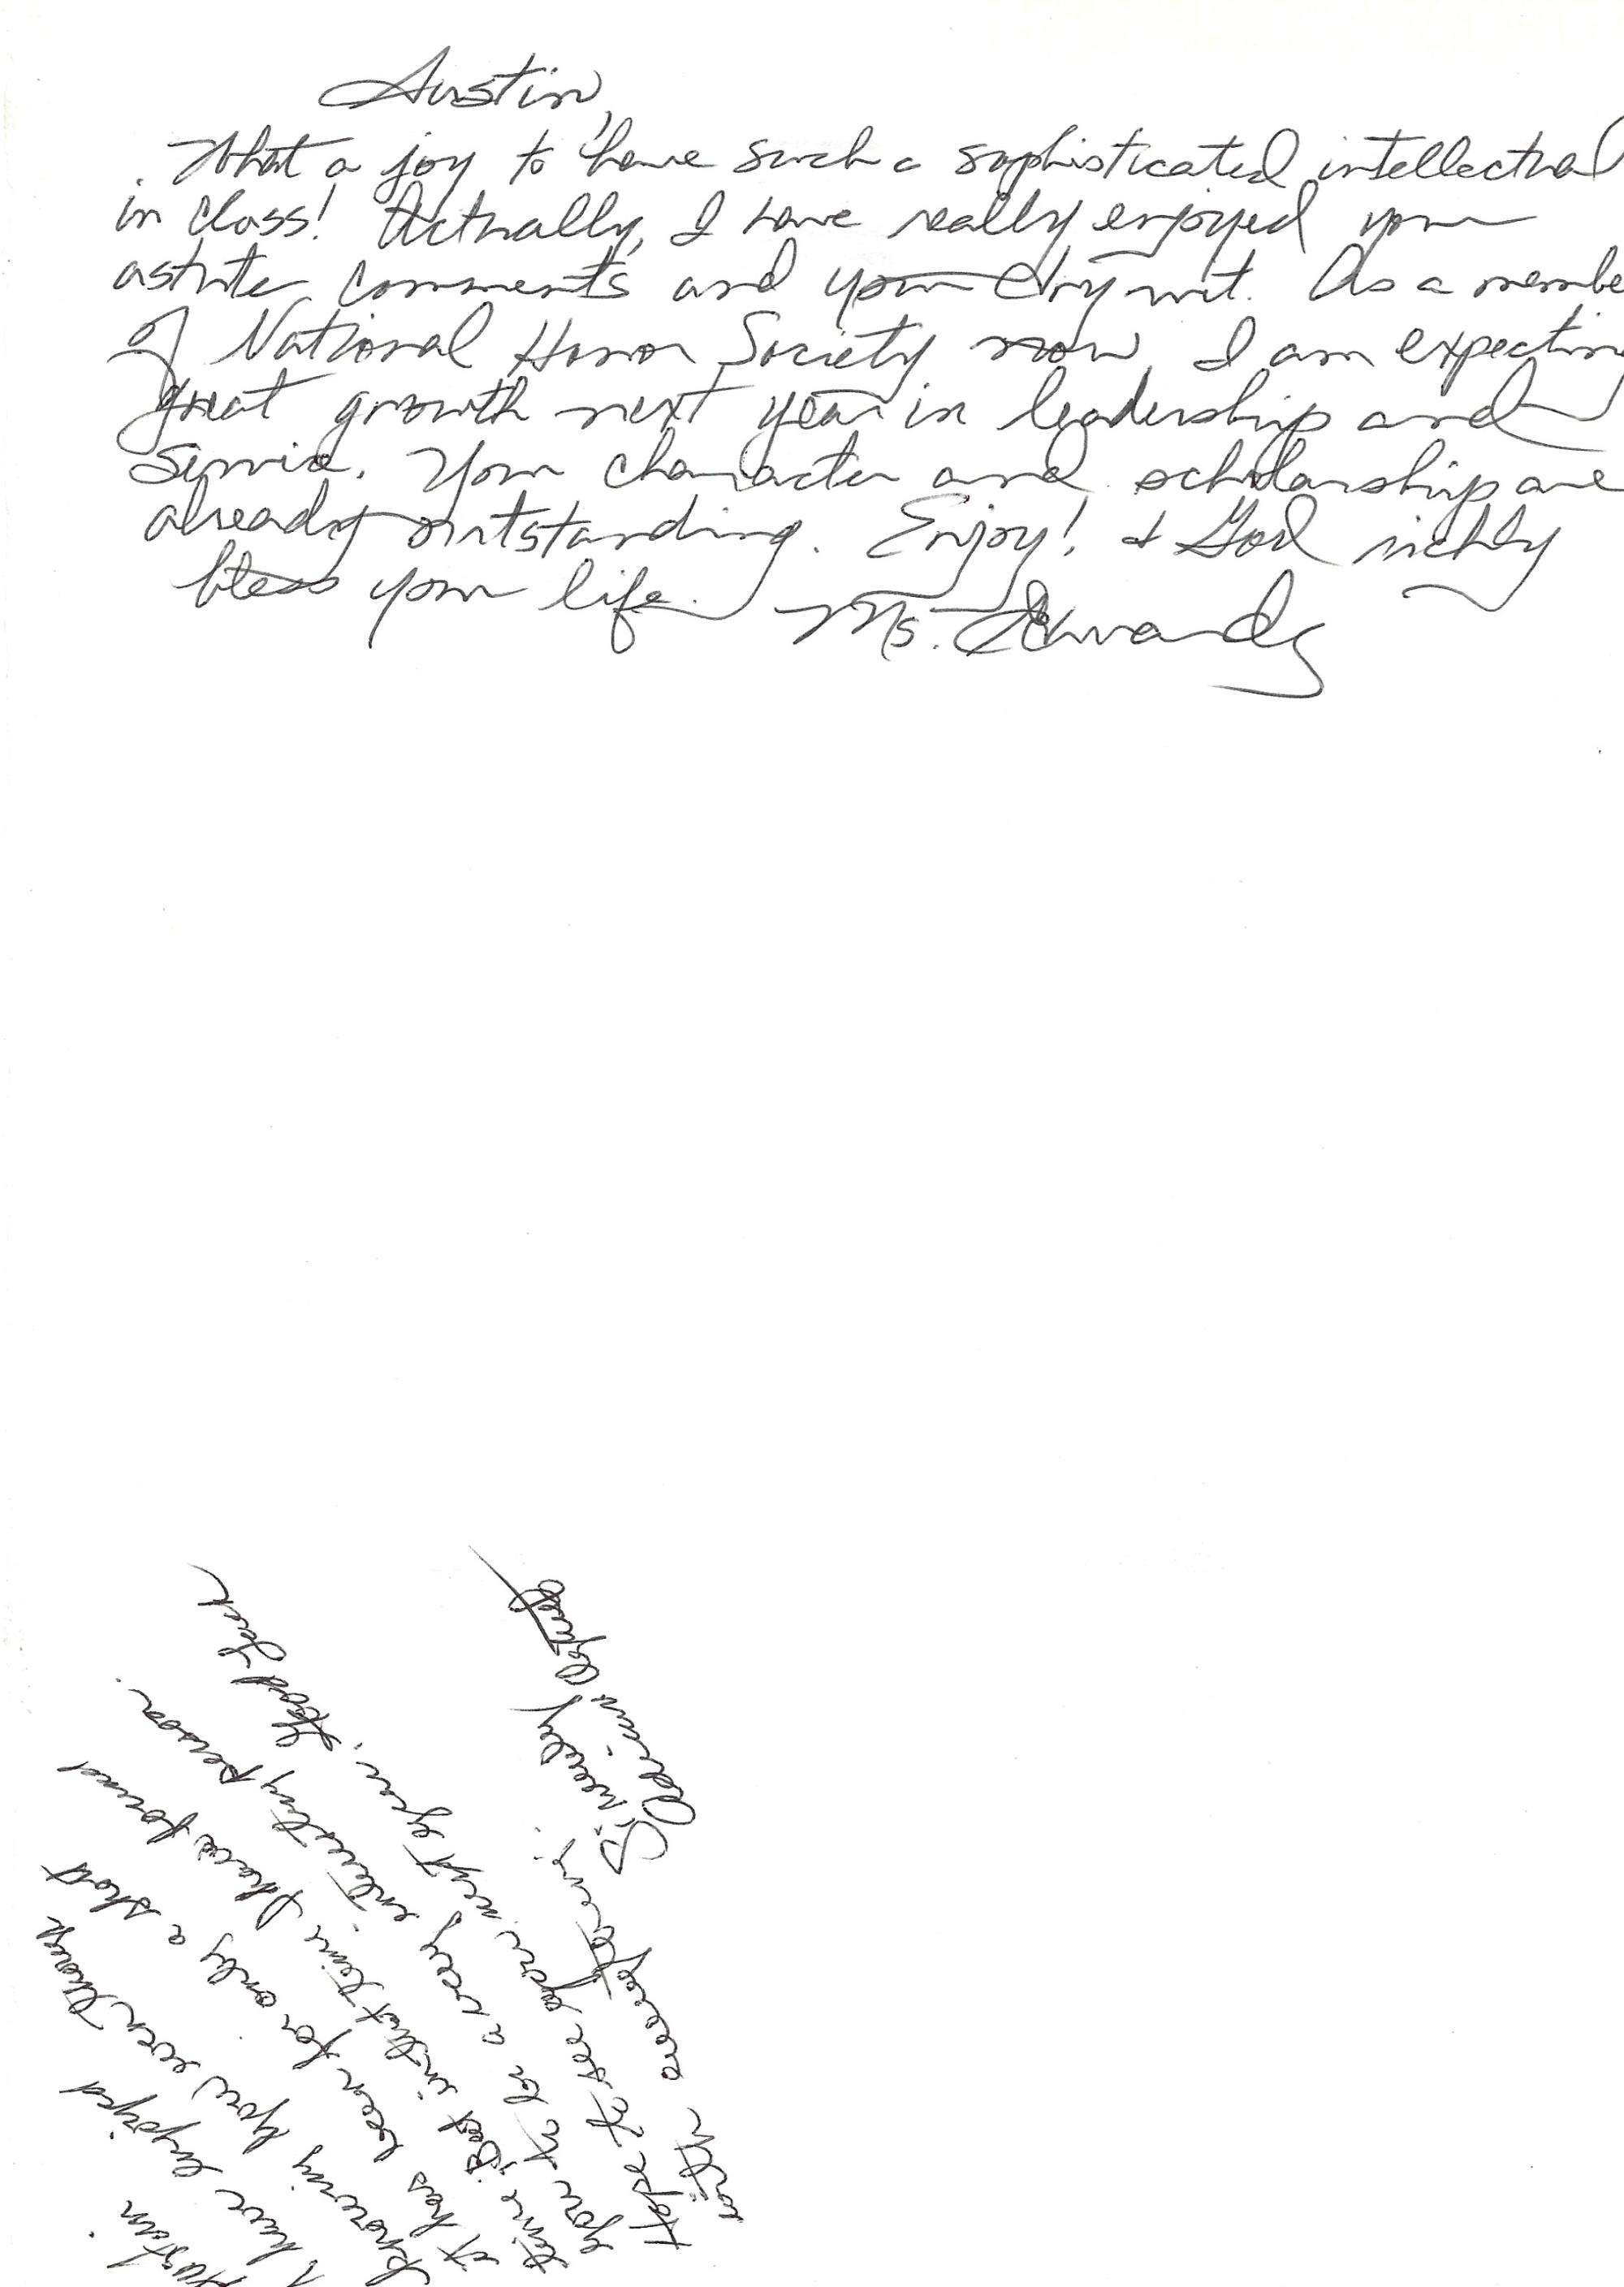 Austin,
What a joy to have such a sophisticated intellectual
in class! Actually, I have really enjoyed your
astute comments and your dry wit. As a membe
of National Honor Society now, I am expectin
great growth next year in leadership and
service. Your character and scholarship are
already outstanding. Enjoy! & God richly
bless your life. Ms. Edwards
Austin
I have enjoyed
knowing you even though
it has been for only a short
time; But in that time I have found
you to be a very interesting person.
Hope to see you next year. Good Luck
with everything.
Sincerely